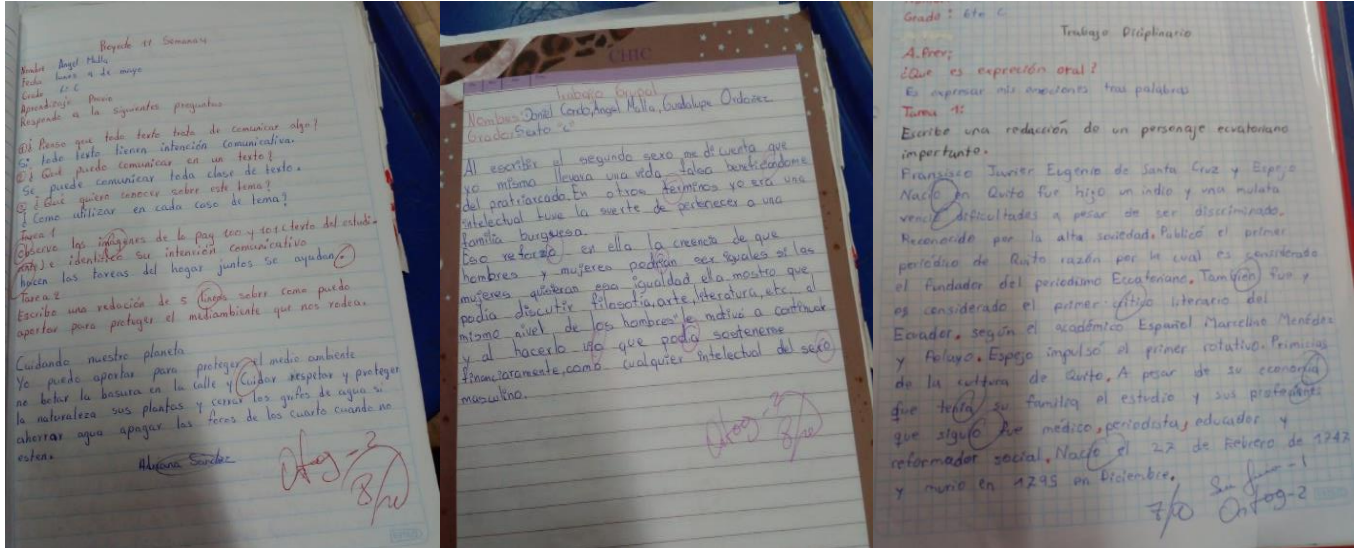 Proyecto 11 Semana 4
Nombre Angel Malla
Fecha lunes 9 de mayo
Grado 6to C
Aprendizaje Previo
Responde a la siguientes preguntas
① ¿ Pienso que todo texto trata de comunicar algo?
Si todo texto tienen intención comunicativa.
② ¿ Qué puedo comunicar en un texto?
Se puede comunicar toda clase de texto.
③ ¿ Qué quiero conocer sobre este tema?
¿ Como utilizar en cada caso de tema?
Tarea 1
Observo las imágenes de la pag 100 y 101 (texto del estudi-
ante) e identifico su intención comunicativo
hacen las tareas del hogar juntos se ayudan.
Tarea 2
Escribo una redación de 5 lineas sobre como puedo
aportar para proteger el mediambiente que nos rodea.
Cuidando nuestro planeta
Yo puedo aportar para proteger el medio ambiente
no botar la basura en la calle y cuidar respetar y proteger
la naturaleza sus plantas y cerrar los grifos de agua si
ahorrar agua apagar los focos de los cuarto cuando no
esten.
Adriana Sánchez
Ofog-2
8/10
CHIC
Trabajo Grupal
Nombres: Daniel Condo, Angel Malla, Guadalupe Ordoñez
Grado: Sexto "c"
Al escribir el segundo sexo me di cuenta que
yo misma llevara una vida falsa beneficandome
del pratriarcado. En otros terminos yo era una
intelectual tuve la suerte de pertenecer a una
familia burguesa.
Eso reforzo en ella la creencia de que
hombres y mujeres podrian ser iguales si las
mujeres quisieran esa igualdad ella mostro que
podia discutir filosofia, arte, literatura, etc. al
mismo nivel de los hombres "le motivó a continuar
y al hacerlo vio que podia sostenerse
financiaramente, como cualquier intelectual del sexo
masculino.
Ofog-2
8/10
Grado: 6to C
Trabajo Diciplinario
A.Prev;
¿Que es expreción oral?
Es expresar mis emociones tras palabras
Tarea 1:
Escribe una redacción de un personaje ecuatoriano
importante.
Fransisco Javier Eugenio de Santa Cruz y Espejo
Nacio en Quito fue hijo un indio y una mulata
vencio dificultades a pesar de ser discriminado.
Reconocido por la alta sociedad. Publicó el primer
periodico de Quito razón por la cual es considerado
el fundador del periodismo Ecuatoriano. Tambien fue y
es considerado el primer critico literario del
Ecuador. según el académico Español Marcelino Menéndez
y Peluyo. Espejo impulsó el primer rotativo. Primicias
de la cultura de Quito. A pesar de su economia
que tenia su familia el estudio y sus profesiones
que siguio fue medico, periodista, educador y
reformador social. Nacio el 27 de Febrero de 1747
y murio en 1795 en Diciembre.
7/10
-1
Ortog-2